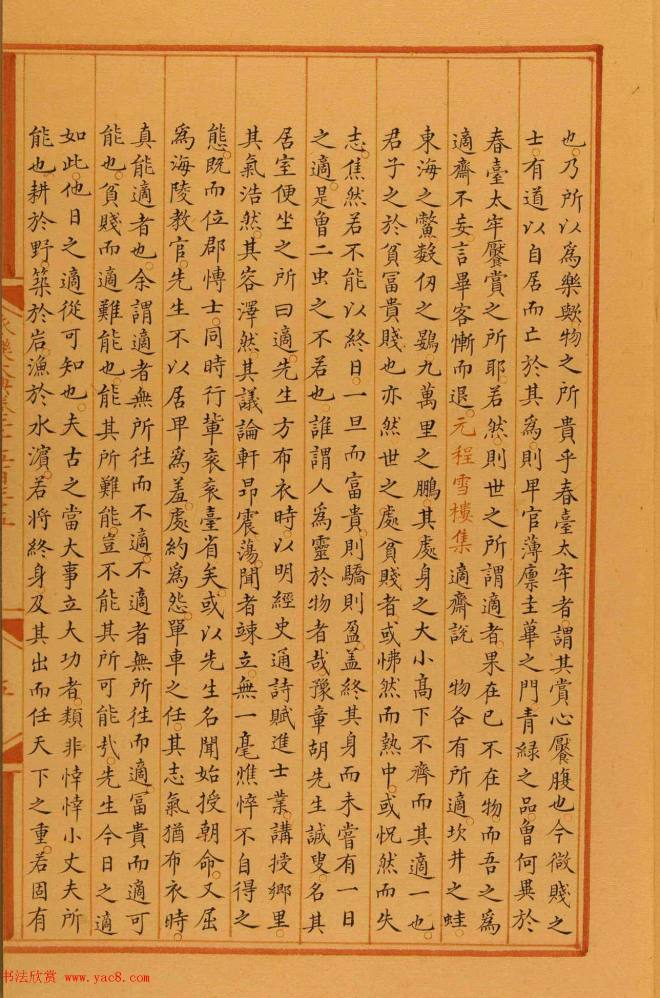 也乃所以為樂歟物之所貴乎春臺太牢者謂其賞心饜腹也今微賤之
士有道以自居而亡於其為則卑官薄廪圭蓽之門青綠之品曾何異於
春臺太牢饜賞之所耶若然則世之所謂適者果在已不在物而吾之為
適齋不妄言畢客慚而退元程雪樓集適齋說 物各有所適坎井之蛙
東海之鼈數仞之鷃九萬里之鵬其處身之大小髙下不齊而其適一也
君子之於貧富貴賤也亦然世之處貧賤者或怫然而熱中或怳然而失
志焦然若不能以終日一旦而富貴則驕則盈盖終其身而未嘗有一日
之適是曾二虫之不若也誰謂人為靈於物者哉豫章胡先生誠叟名其
居室便坐之所曰適先生方布衣時以明經史通詩賦進士業講授鄉里
其氣浩然其容澤然其議論軒昂震蕩聞者竦立無一毫憔悴不自得之
態既而位郡博士同時行輩衮衮臺省矣或以先生名聞始授朝命又屈
為海陵教官先生不以居卑為羞處約為怨單車之任其志氣猶布衣時
真能適者也余謂適者無所往而不適不適者無所往而適富貴而適可
能也貧賤而適難能也能其所難能豈不能其所可能哉先生今日之適
如此他日之適從可知也夫古之當大事立大功者類非悻悻小丈夫所
能也耕於野築於岩漁於水濵若將終身及其出而任天下之重若固有
书法欣赏 www.yac8.com